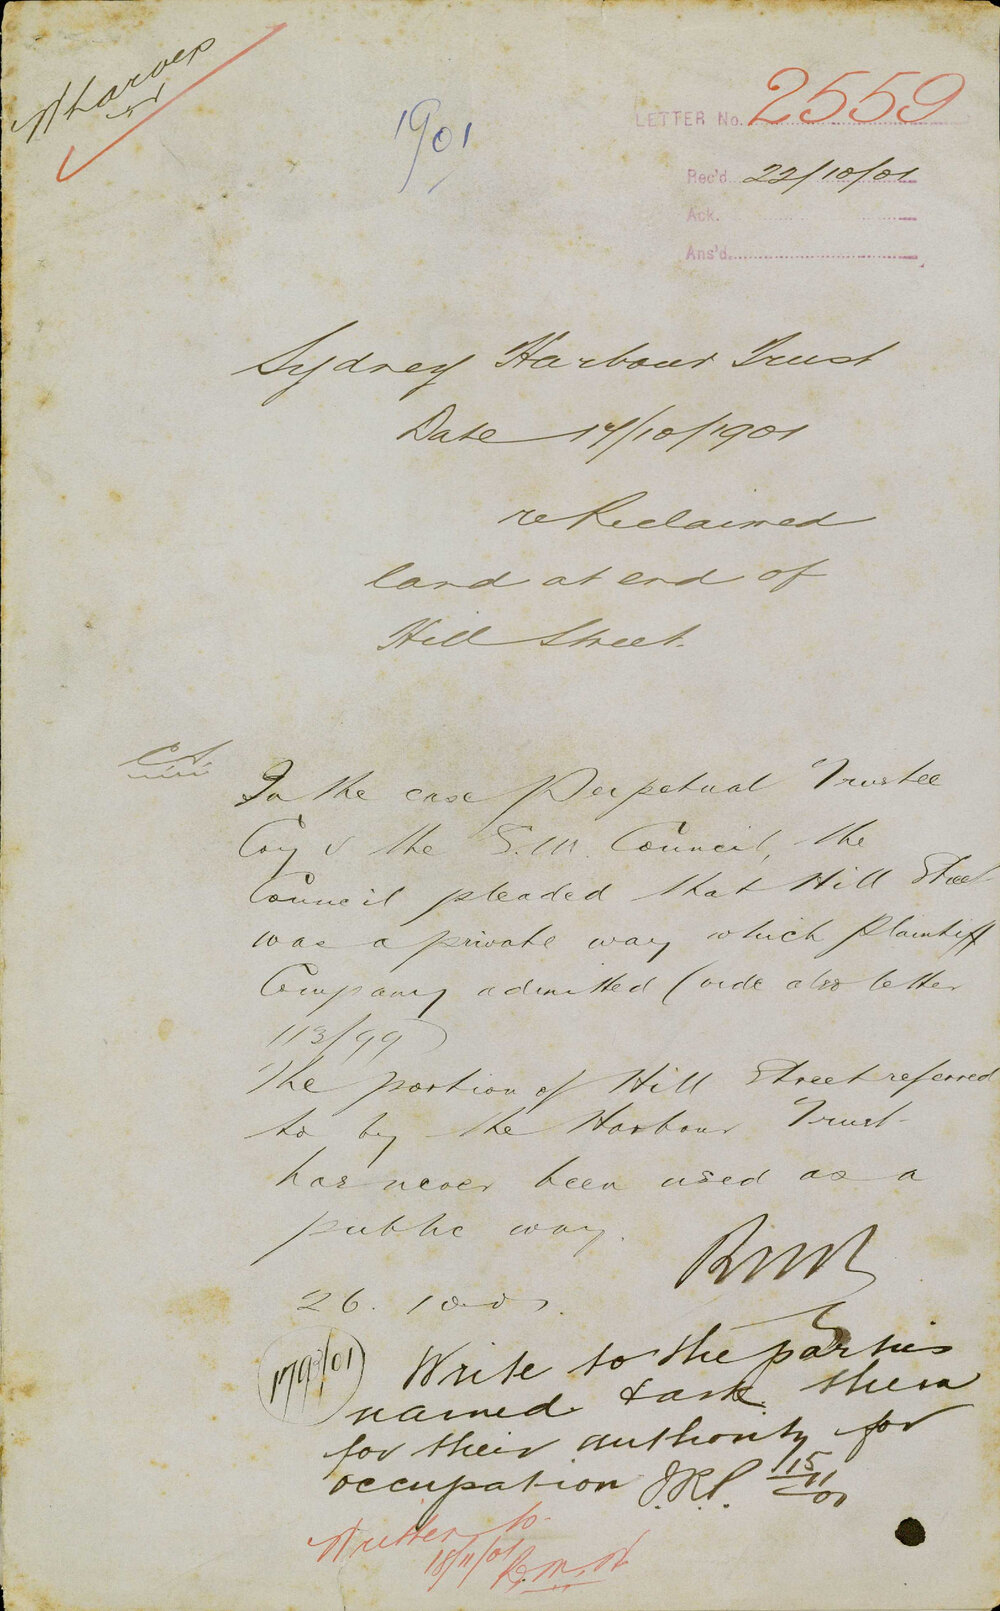 Wharves
1901
LETTER No. 2559
Rec'd. 22/10/01
Ack.
Ans'd.
Sydney Harbour Trust
Date 17/10/1901
re Reclaimed
land at end of
Hill Street.
C.S.
In the case Perpetual Trustee
Coy v the S.M. Council, the
Council pleaded that Hill Street
was a private way which plaintiff
Company admitted (vide also letter
113/99)
The portion of Hill Street referred
to by the Harbour Trust
has never been used as a
public way.
26.10.01.
Write to the parties
named & ask them
for their authority for
occupation J.R.P. 15/11/01
Written to
18/11/01